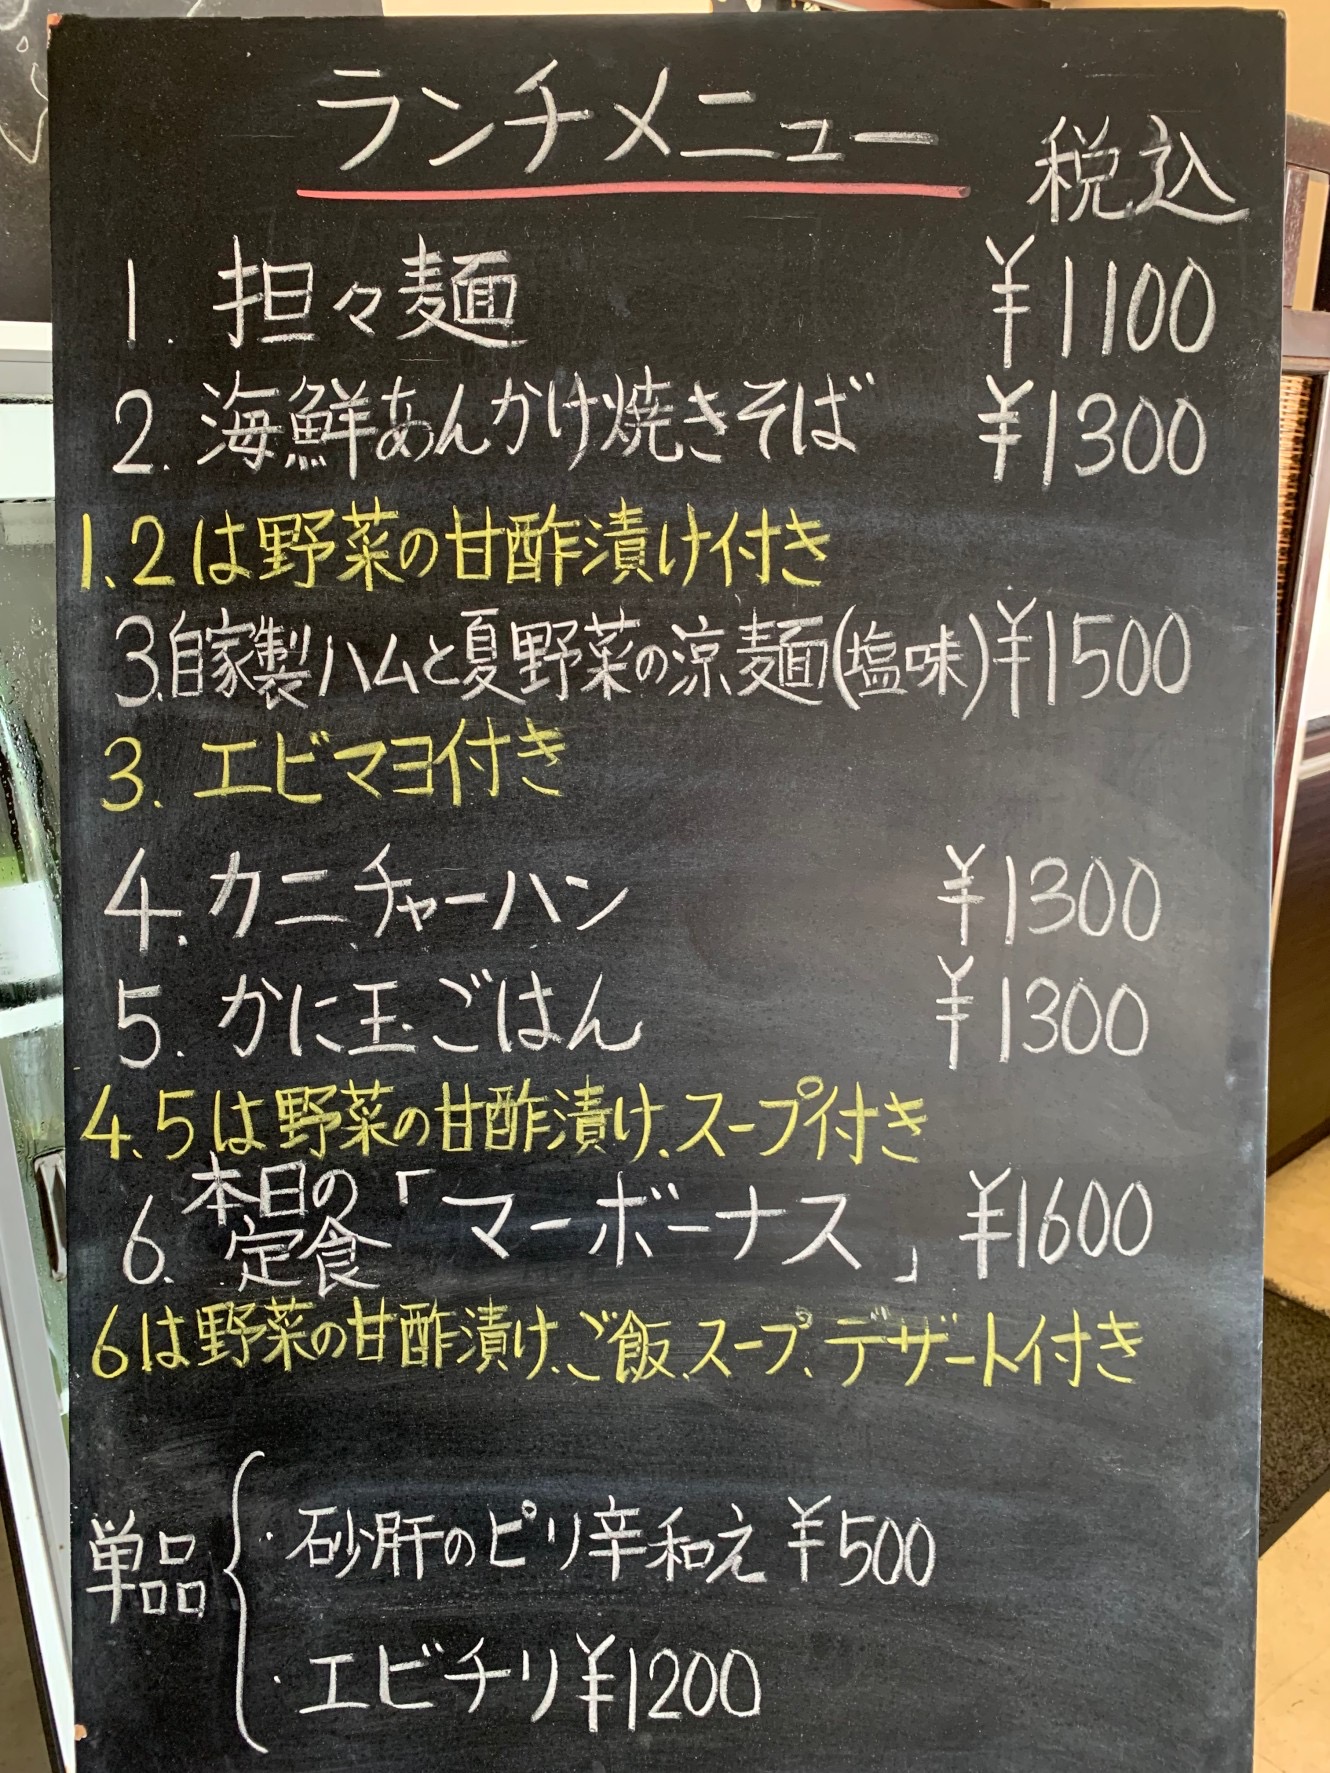 ランチメニュー 税込
1. 担々麺 ¥1100
2. 海鮮あんかけ焼きそば ¥1300
1.2は野菜の甘酢漬け付き
3.自家製ハムと夏野菜の涼麺(塩味)¥1500
3. エビマヨ付き
4. カニチャーハン ¥1300
5. かに玉ごはん ¥1300
4.5は野菜の甘酢漬け、スープ付き
6. 本日の定食「マーボーナス」¥1600
6は野菜の甘酢漬け、ご飯、スープ、デザート付き
単品
・砂肝のピリ辛和え ¥500
・エビチリ¥1200